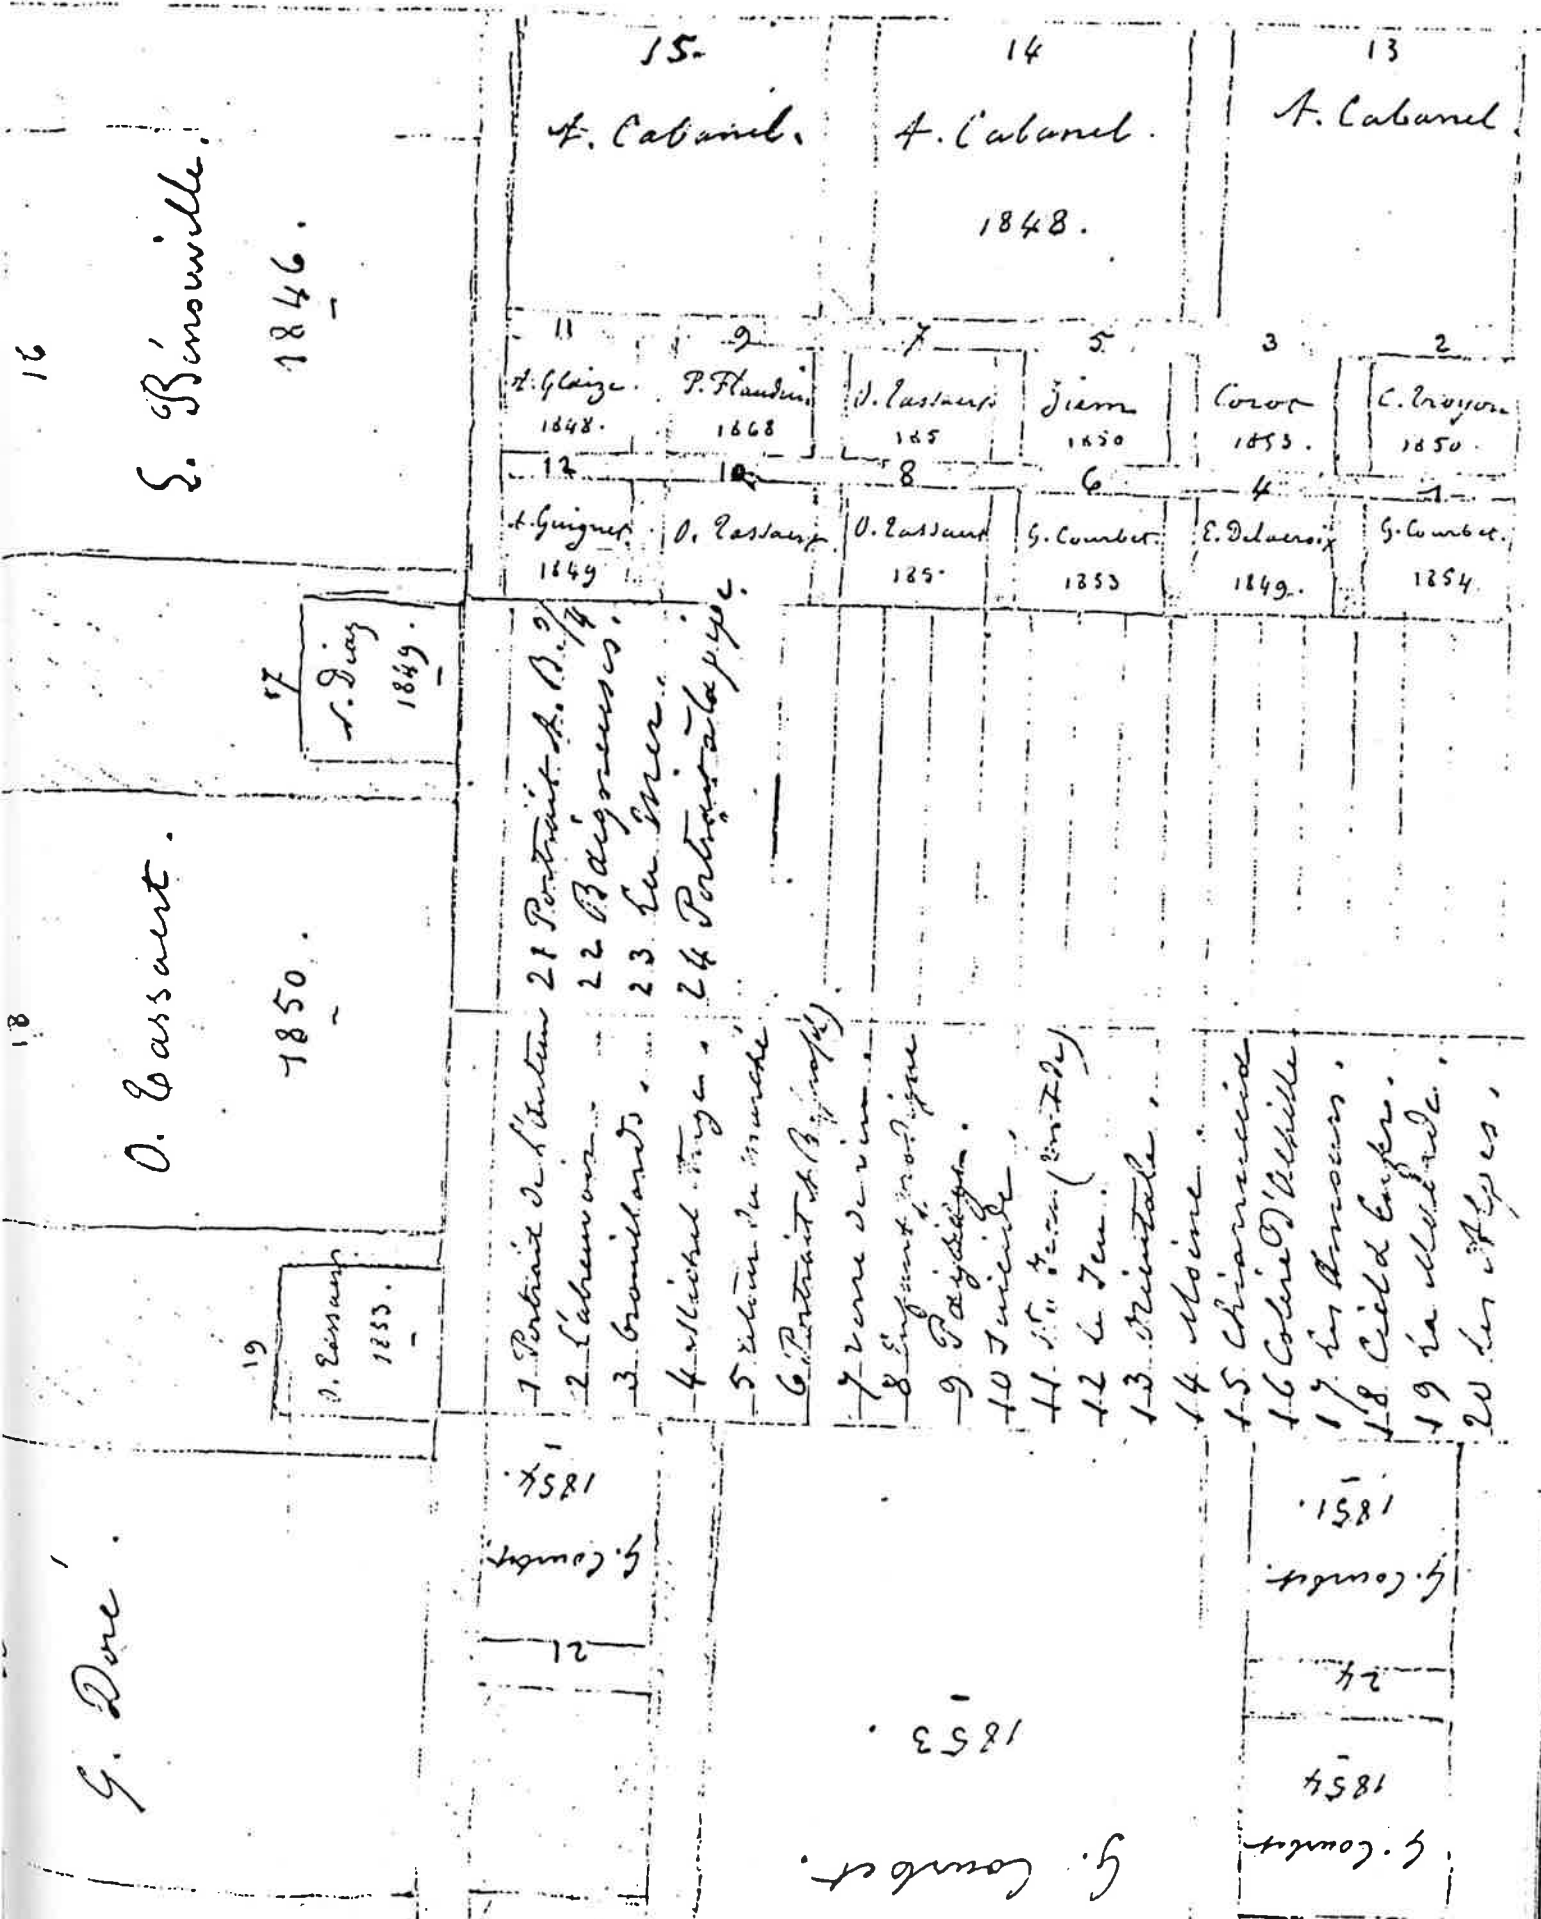 15.
A. Cabanel.
14
A. Cabanel.
1848.
13
A. Cabanel
11
A. Glaize.
1848.
9
P. Flandrin
1868
7
O. Tassaert
185
5
Ziem
1850
3
Corot
1853.
2
C. Troyon
1850.
12
A. Guignet
1849
10
O. Tassaert
8
O. Tassaert
185
6
G. Courbet.
1853
4
E. Delacroix
1849.
1
G. Courbet.
1854.
16
E. Bénouville.
1846.
17
N. Diaz
1849.
18
O. Tassaert.
1850.
19
O. Tassaert
1853.
G. Doré.
1 Portrait de l'auteur
2 L'abreuvoir
3 brouillards.
4 Michel Ange.
5 retour du marché
6 Portrait A. B. (profil)
7 Verre de vin.
8 Enfant prodigue
9 Paysage.
10 Suicide
11 Jean
12 Le Jeu.
13 Orientale.
14 Moine.
15 Chiaruccia
16 Colère d'Achille
17 Les Amours.
18 Ciel & Enfer.
19 La Malade.
20 Les Alpes.
21 Portrait A. B. 3/4
22 Baigneuses.
23 La Mer.
24 Portrait à la pipe.
21
G. Courbet.
1854.
G. Courbet.
1853.
24
G. Courbet.
1851.
G. Courbet
1854